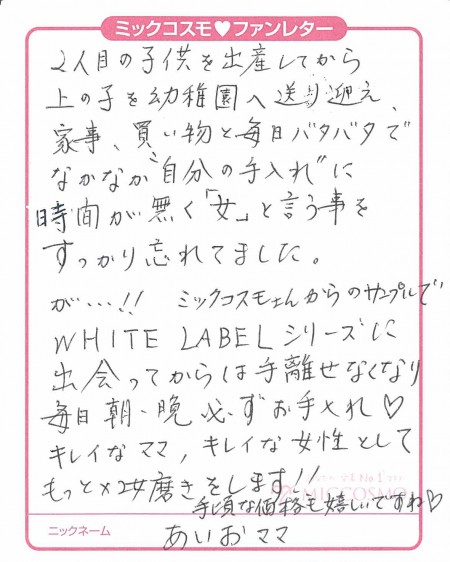 ミックコスモ♥ファンレター
2人目の子供を出産してから
上の子を幼稚園へ送り迎え、
家事、買い物と毎日バタバタで
なかなか"自分の手入れ"に
時間が無く「女」と言う事を
すっかり忘れてました。
が…!! ミックコスモさんからのサンプルで
WHITE LABELシリーズに
出会ってからは手離せなくなり
毎日朝・晩必ずお手入れ♡
キレイなママ,キレイな女性として
もっと××女磨きをします!!
No.1
MICCOSMO
手頃な価格も嬉しいですね♡
ニックネーム
あいおママ